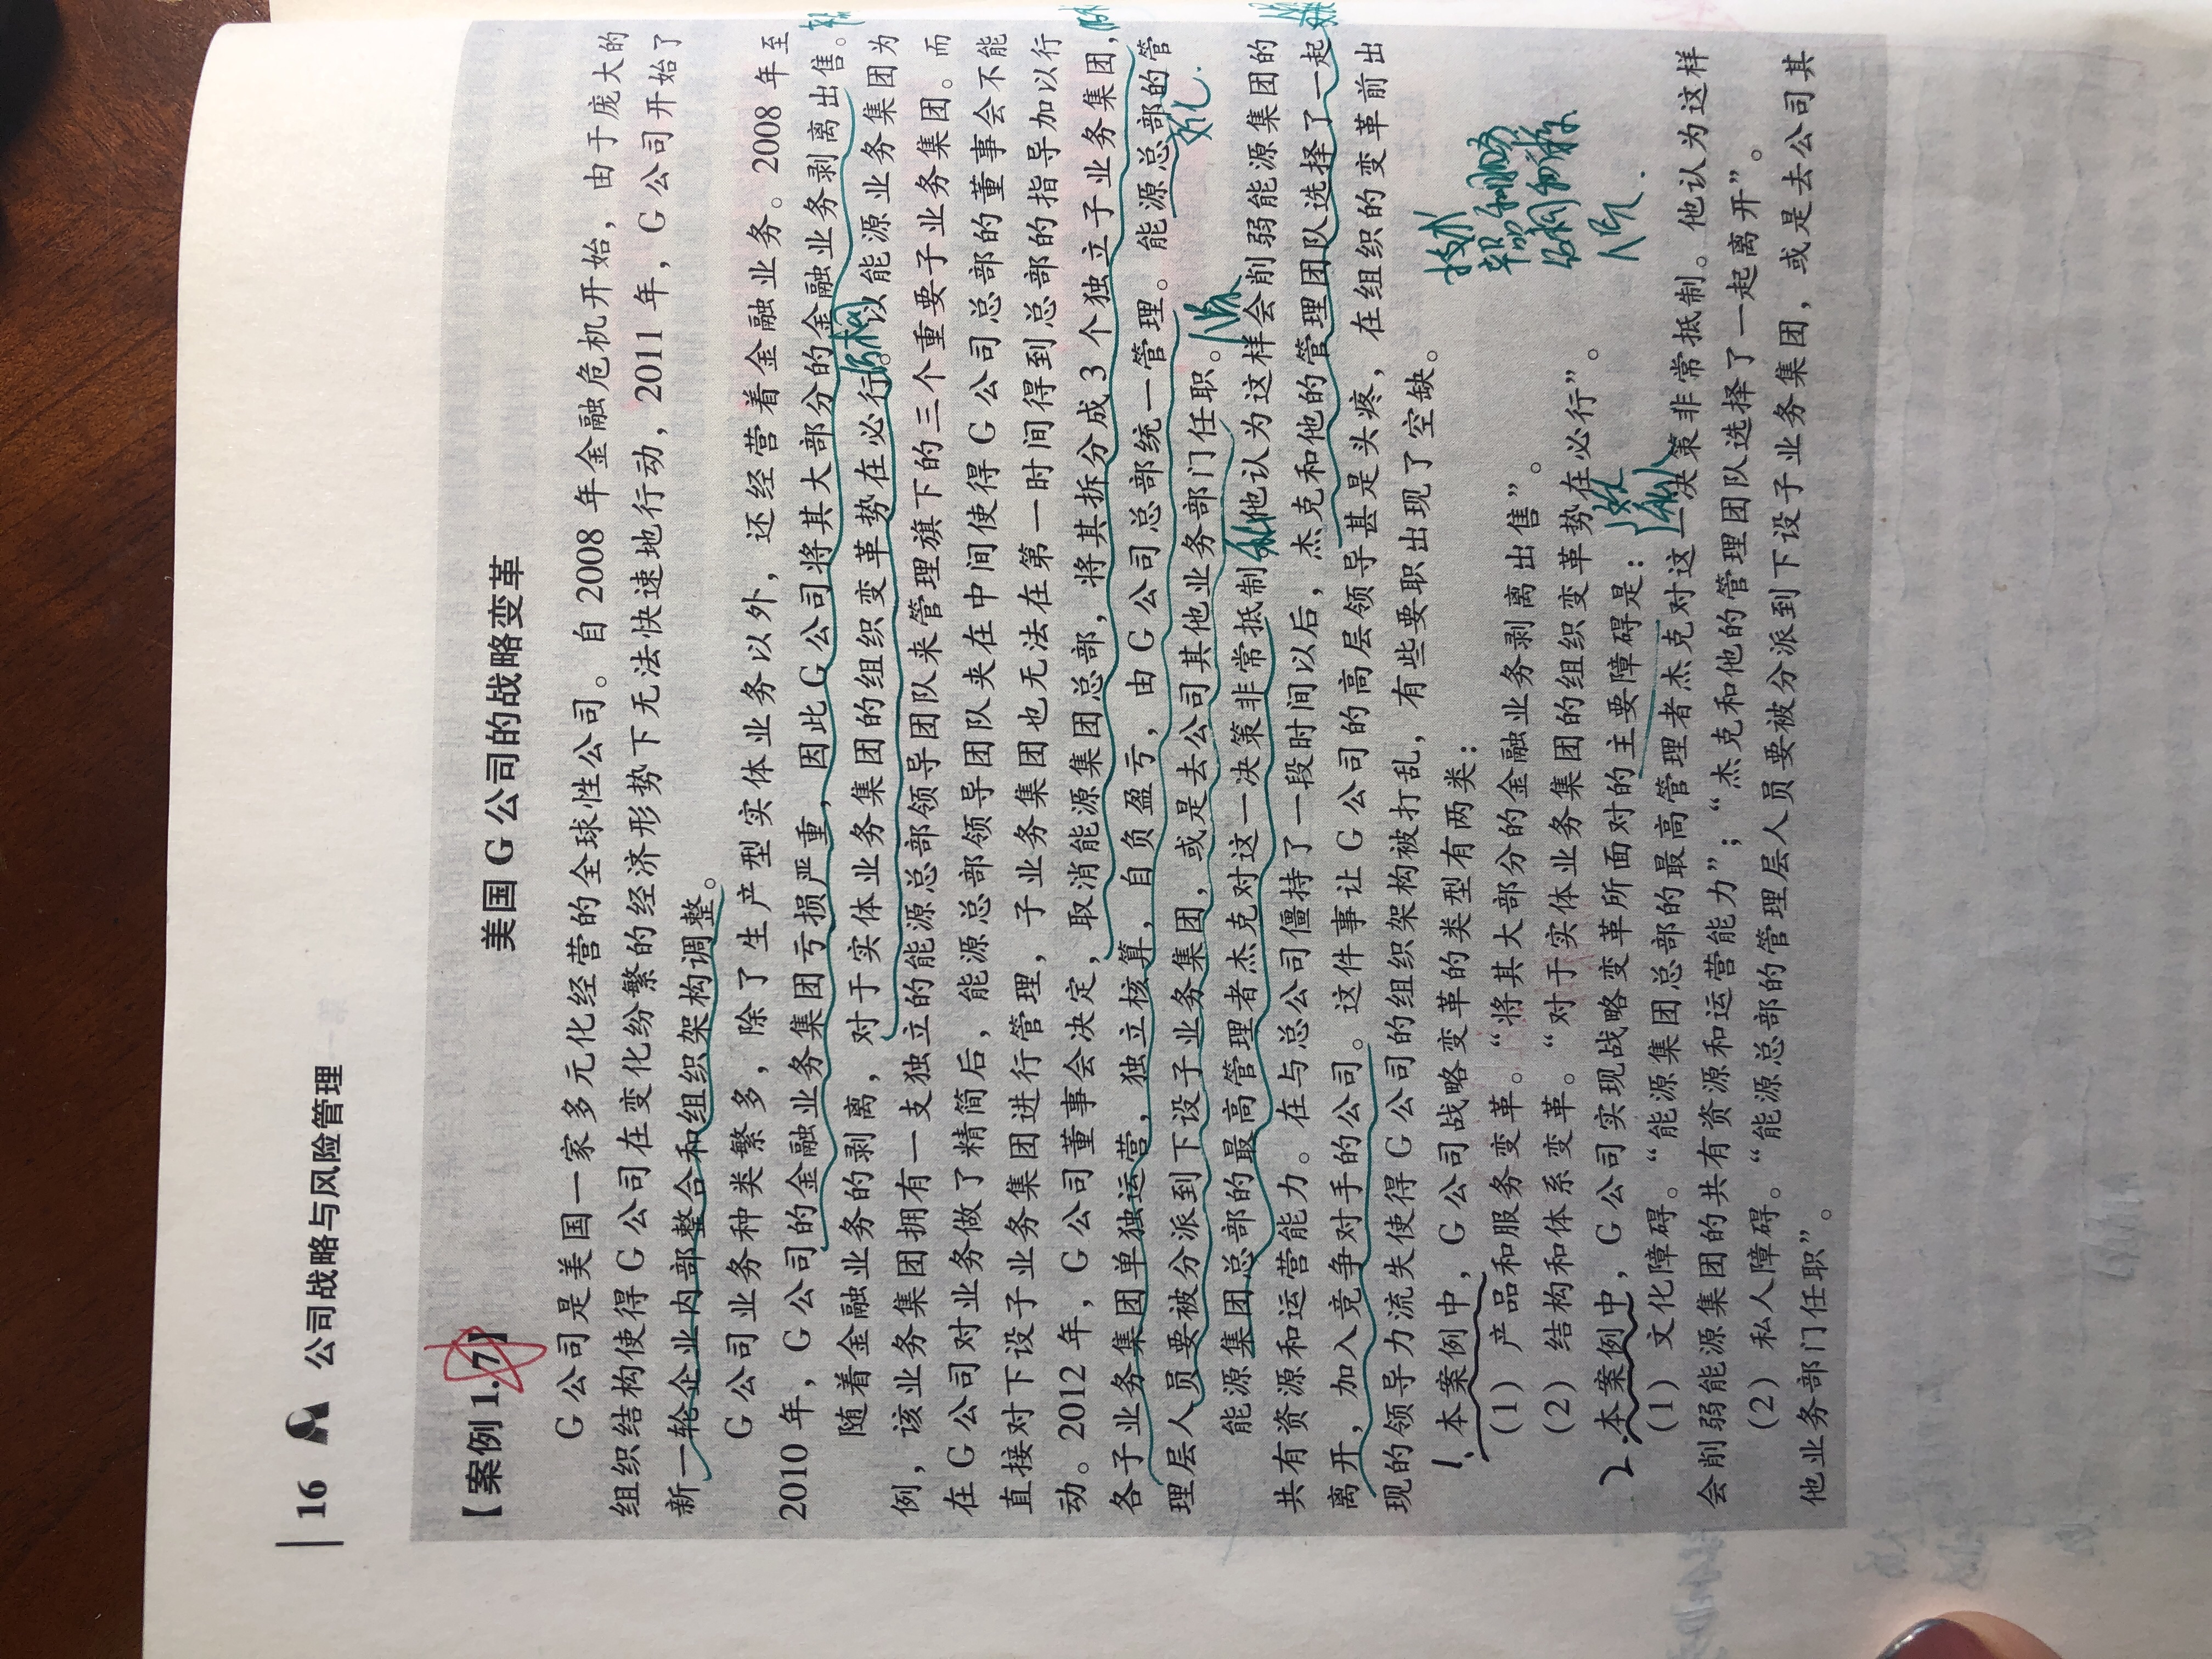 16 公司战略与风险管理
【案例1.7】
美国G公司的战略变革
G公司是美国一家多元化经营的全球性公司。自2008年金融危机开始，由于庞大的
组织结构使得G公司在变化纷繁的经济形势下无法快速地行动，2011年，G公司开始了
新一轮企业内部整合和组织架构调整。
G公司业务种类繁多，除了生产型实体业务以外，还经营着金融业务。2008年至
2010年，G公司的金融业务集团亏损严重，因此G公司将其大部分的金融业务剥离出售。
随着金融业务的剥离，对于实体业务集团的组织变革势在必行。以能源业务集团为
结构
例，该业务集团拥有一支独立的能源总部领导团队来管理旗下的三个重要子业务集团。而
在G公司对业务做了精简后，能源总部领导团队夹在中间使得G公司总部的董事会不能
直接对下设子业务集团进行管理，子业务集团也无法在第一时间得到总部的指导加以行
动。2012年，G公司董事会决定，取消能源集团总部，将其拆分成3个独立子业务集团，
各子业务集团单独运营，独立核算，自负盈亏，由G公司总部统一管理。能源总部的管
文化.
理层人员要被分派到下设子业务集团，或是去公司其他业务部门任职。
人员
能源集团总部的最高管理者杰克对这一决策非常抵制，他认为这样会削弱能源集团的
私
共有资源和运营能力。在与总公司僵持了一段时间以后，杰克和他的管理团队选择了一起
离开，加入竞争对手的公司。这件事让G公司的高层领导甚是头疼，在组织的变革前出
现的领导力流失使得G公司的组织架构被打乱，有些要职出现了空缺。
1. 本案例中，G公司战略变革的类型有两类：
技术
（1）产品和服务变革。“将其大部分的金融业务剥离出售”。
产品和服务
（2）结构和体系变革。“对于实体业务集团的组织变革势在必行”。
结构和体系
人员.
2. 本案例中，G公司实现战略变革所面对的主要障碍是：
文化
私人
（1）文化障碍。“能源集团总部的最高管理者杰克对这一决策非常抵制。他认为这样
会削弱能源集团的共有资源和运营能力”；“杰克和他的管理团队选择了一起离开”。
（2）私人障碍。“能源总部的管理层人员要被分派到下设子业务集团，或是去公司其
他业务部门任职”。